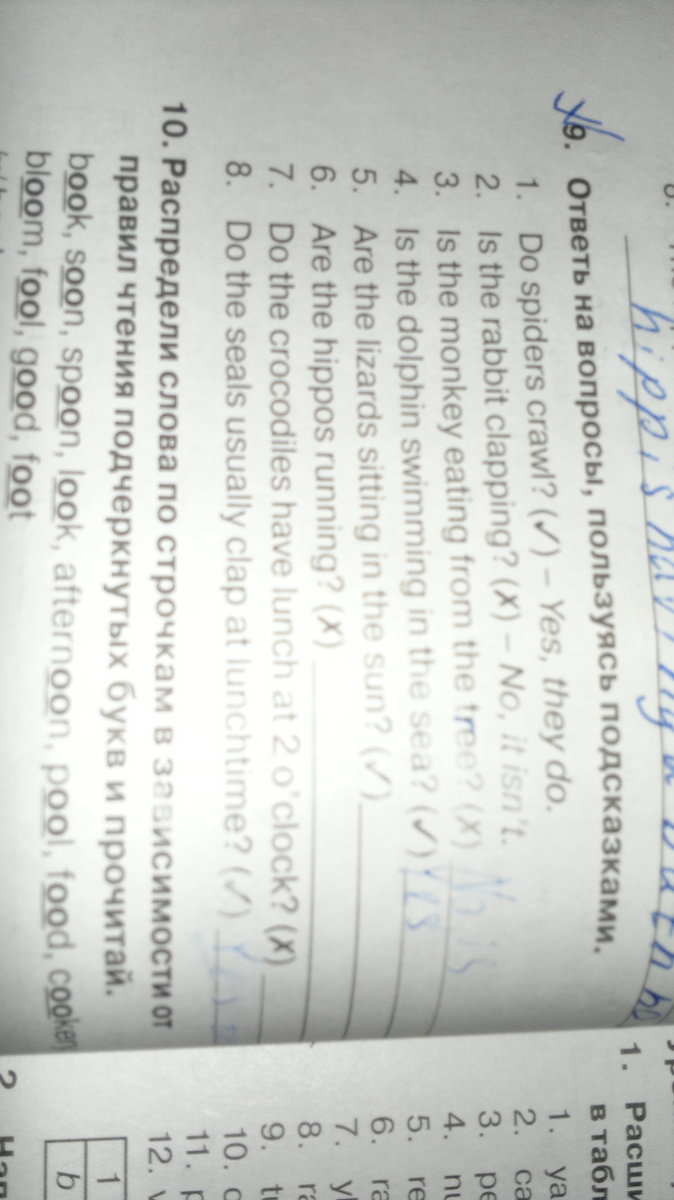 hippo is having a
9. Ответь на вопросы, пользуясь подсказками.
1. Do spiders crawl? (✓) – Yes, they do.
2. Is the rabbit clapping? (✗) – No, it isn't.
3. Is the monkey eating from the tree? (✗) No is
4. Is the dolphin swimming in the sea? (✓) Yes
5. Are the lizards sitting in the sun? (✓)
6. Are the hippos running? (✗)
7. Do the crocodiles have lunch at 2 o'clock? (✗)
8. Do the seals usually clap at lunchtime? (✓)
10. Распредели слова по строчкам в зависимости от
правил чтения подчеркнутых букв и прочитай.
book, soon, spoon, look, afternoon, pool, food, cooker
bloom, fool, good, foot
1.
в табл
1.
2. ca
3. pe
4. nu
5. re
6. ra
7.
8. ra
9.
10.
11.
12.
1
b
2